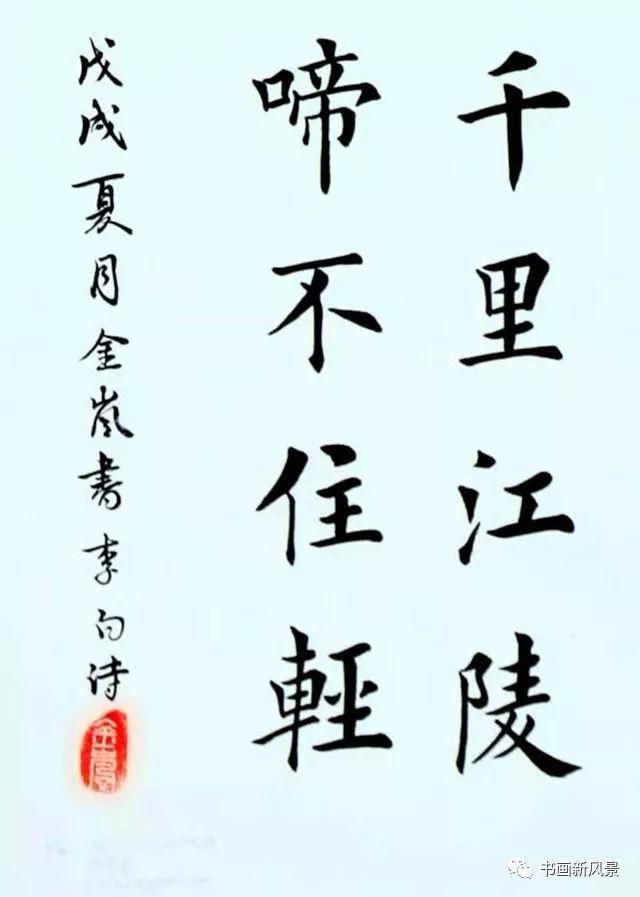 千里江陵
啼不住輕
戊戌夏月金岚書李白诗
书画新风景